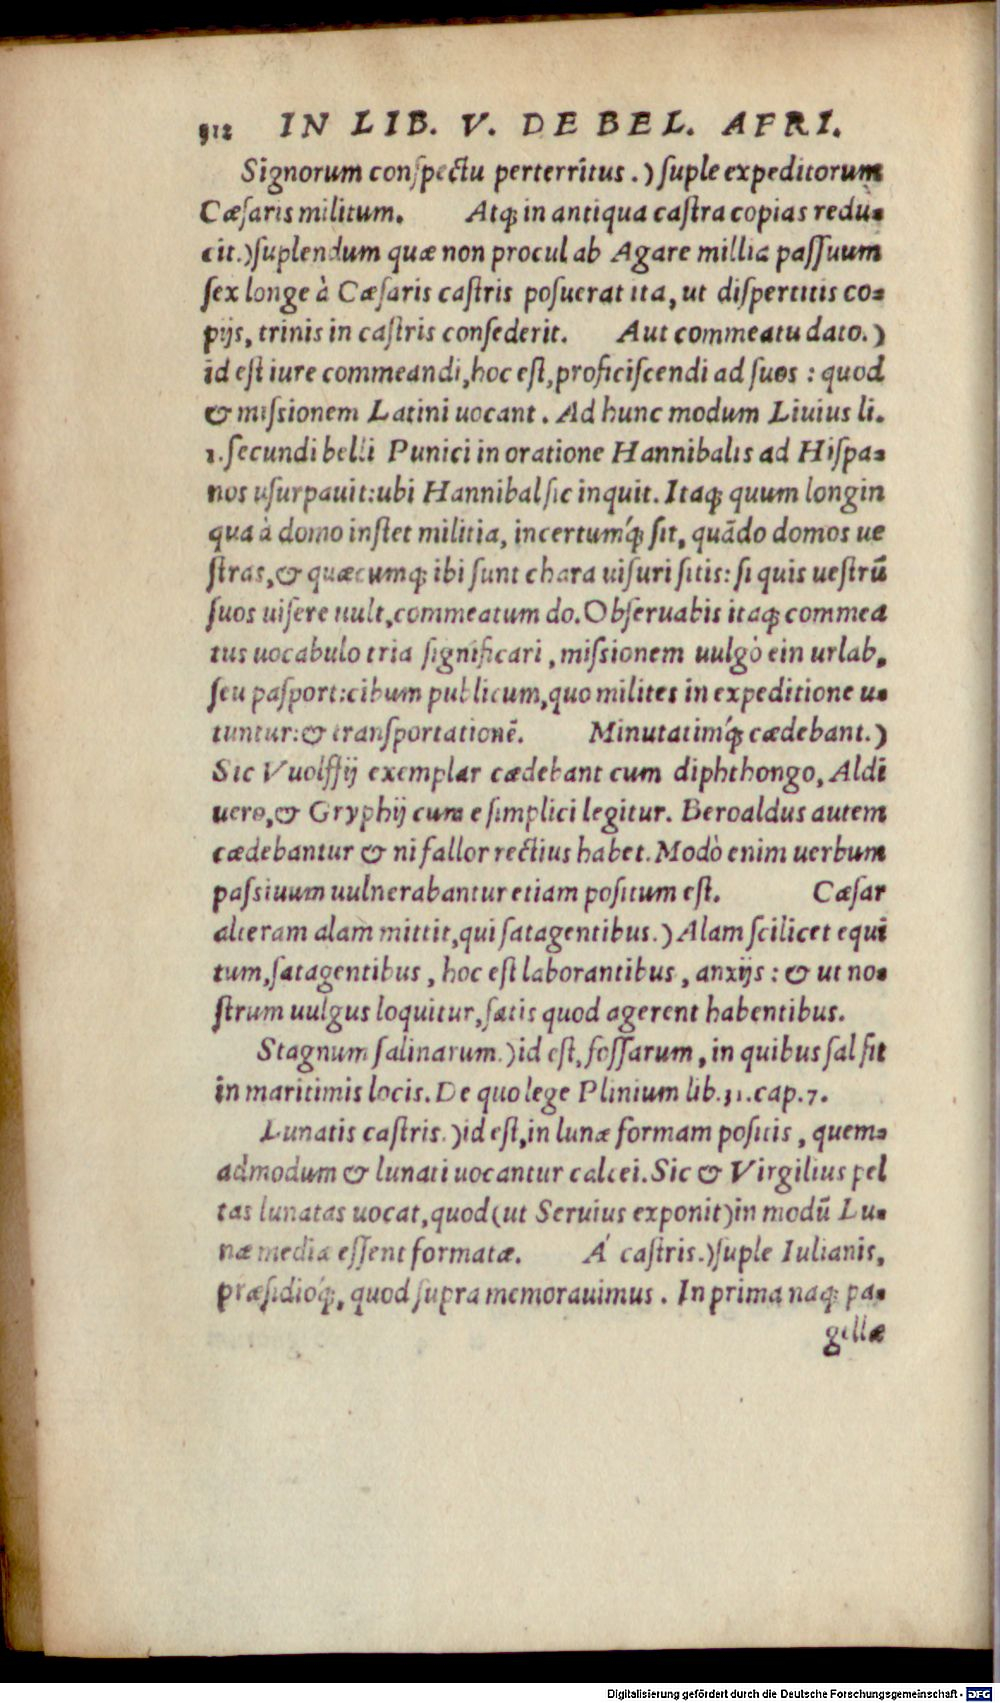 912 IN LIB. V. DE BEL. AFRI.
Signorum conspectu perterritus.) suple expeditorum
Cæsaris militum. Atq; in antiqua castra copias redu-
cit.) suplendum quæ non procul ab Agare millia passuum
sex longe à Cæsaris castris posuerat ita, ut dispertitis co-
pijs, trinis in castris consederit. Aut commeatu dato.)
id est iure commeandi, hoc est, proficiscendi ad suos : quod
& missionem Latini uocant. Ad hunc modum Liuius li.
1. secundi belli Punici in oratione Hannibalis ad Hispa-
nos usurpauit: ubi Hannibal sic inquit. Itaq; quum longin
qua à domo instet militia, incertumq́; sit, quãdo domos ue
stras, & quæcumq; ibi sunt chara uisuri sitis: si quis uestrũ
suos uisere uult, commeatum do. Obseruabis itaq; commea
tus uocabulo tria significari, missionem uulgò ein urlab,
seu pasport: cibum publicum, quo milites in expeditione u-
tuntur: & transportationẽ. Minutatimq́; cædebant.)
Sic Vuolffij exemplar cædebant cum diphthongo, Aldi
uero, & Gryphij cum e simplici legitur. Beroaldus autem
cædebantur & ni fallor rectius habet. Modò enim uerbum
passiuum uulnerabantur etiam positum est. Cæsar
alteram alam mittit, qui satagentibus.) Alam scilicet equi
tum, satagentibus, hoc est laborantibus, anxijs : & ut no-
strum uulgus loquitur, satis quod agerent habentibus.
Stagnum salinarum.) id est, fossarum, in quibus sal fit
in maritimis locis. De quo lege Plinium lib. 31. cap. 7.
Lunatis castris.) id est, in lunæ formam positis, quem-
admodum & lunati uocantur calcei. Sic & Virgilius pel
tas lunatas uocat, quod (ut Seruius exponit) in modũ Lu-
næ mediæ essent formatæ. Á castris.) suple Iulianis,
præsidioq́;, quod supra memorauimus. In prima naq; pa-
gellæ
Digitalisierung gefördert durch die Deutsche Forschungsgemeinschaft - DFG